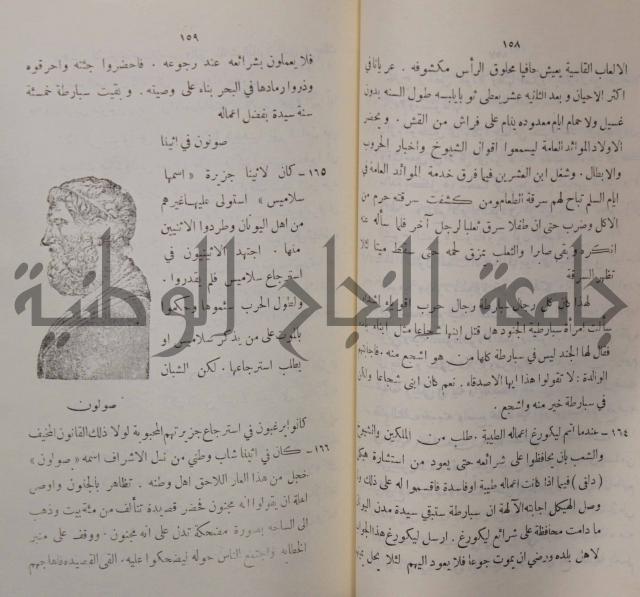 ١٥٨
الالعاب القاسية يعيش حافيا محلوق الرأس مكشوفه . عريانا في
اكثر الاحيان وبعد الثانيه عشر يعطى ثوبا يلبسه طول السنه بدون
غسيل ولا حمام ايام معدوده ينام على فراش من القش . ويحضر
الاولاد الموائد العامة ليسمعوا اقوال الشيوخ واخبار الحروب
والابطال . وشغل ابن العشرين فيما فرق خدمة الموائد العامة في
ايام السلم تباح لهم سرقة الطعام ومن كشفت سرقته حرم من
الاكل وضرب حتى ان طفلا سرق ثعلبا لرجل آخر فلما سأله عنه
انكره وبقي صابرا والثعلب يمزق لحمه حتى سقط ميتا لئلا
تظهر السرقة
لهذا كان كل رجال سبارطة رجال حرب اقوياء
سألت امرأة سبارطية الجنود هل قتل ابنها شجاعا مثل ابناء
فقال لها الجند ليس في سبارطة كلها من هو اشجع منه . فاجابتهم
الوالدة : لا تقولوا هذا ايها الاصدقاء . نعم كان ابني شجاعا ولكن
في سبارطة خير منه واشجع .
١٦٤ – عندما اتم ليكورغ اعماله الطيبة . طلب من الملكين والشيوخ
والشعب بان يحافظوا على شرائعه حتى يعود من استشارة هيكل
( دلفي ) فيما اذا كانت اعماله طيبة او فاسدة فاقسموا له على ذلك ولما
وصل الهيكل اجابته الآلهة ان سبارطة ستبقى سيدة مدن اليونان
ما دامت محافظة على شرائع ليكورغ . ارسل ليكورغ هذا الجواب
لاهل بلده ورضي ان يموت جوعا فلا يعود اليهم لئلا يحل
١٥٩
فلا يعملون بشرائعه عند رجوعه . فاحضروا جثته واحرقوه
وذروا رمادها في البحر بناء على وصيته . وبقيت سبارطة خمسئة
سنة سيدة بفضل اعماله
صولون في اثينا
١٦٥ – كان لاثينا جزيرة « اسمها
سلاميس » استولى عليها غيرهم
من اهل اليونان وطردوا الاثنيين
منها . اجتهد الاثينيون في
استرجاع سلاميس فلم يقدروا .
ولطول الحرب سئموها وحكموا
بالموت على من يذكر سلاميس او
يطلب استرجاعها . لكن الشبان
صولون
كانوا يرغبون في استرجاع جزيرتهم المحبوبة لولا ذلك القانون المخيف
١٦٦ – كان في اثينا شاب وطني من نسل الاشراف اسمه « صولون »
خجل من هذا العار اللاحق اهل وطنه . تظاهر بالجنون واوصى
اهله ان يقولوا انه مجنون فحضر قصيدة تتألف من مئة بيت وذهب
الى الساحه بصورة مضحكة تدل على انه مجنون . ووقف على منبر
الخطابه واجتمع الناس حوله ليضحكوا عليه . القى القصيده فاهاجهم
جامعة النجاح الوطنية